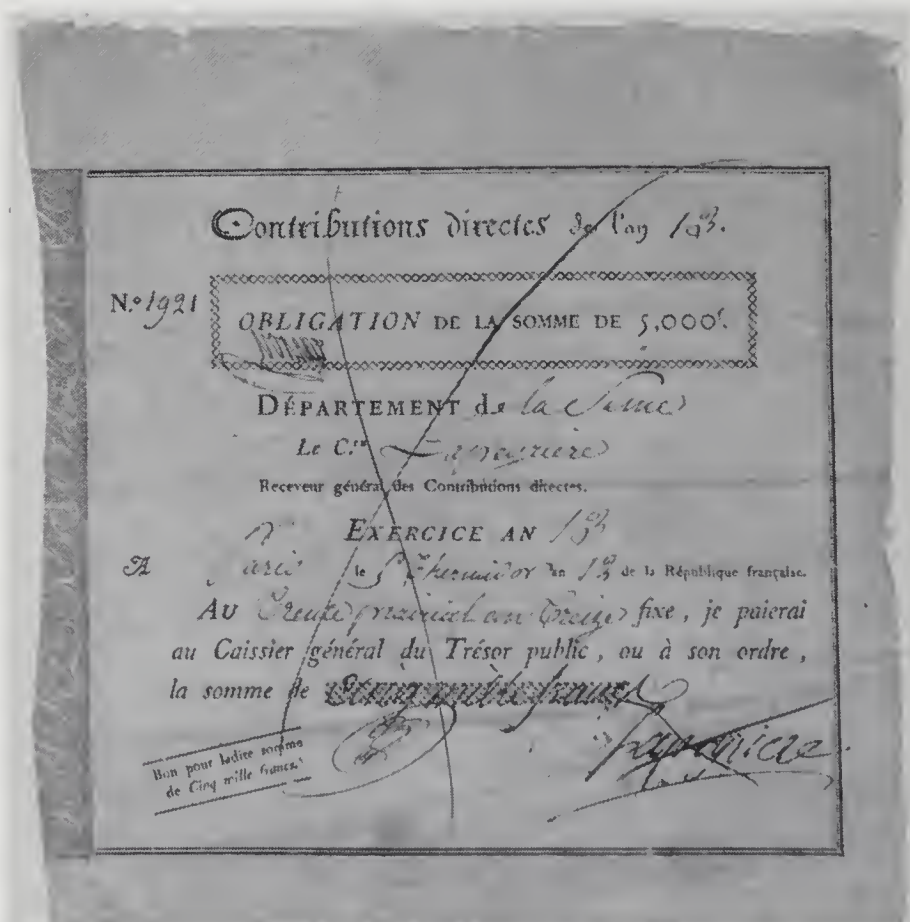 Contributions directes de l'an 13.
N.º 1921
OBLIGATION DE LA SOMME DE 5,000f.
DÉPARTEMENT de la Seine
Le C.en Lapeyrière
Receveur général des Contributions directes.
EXERCICE AN 13
A Paris le Thermidor an 13 de la République française.
Au Trente prairial an treize fixe, je paierai
au Caissier général du Trésor public, ou à son ordre,
la somme de Cinq mille francs
Bon pour ladite somme
de Cinq mille francs.